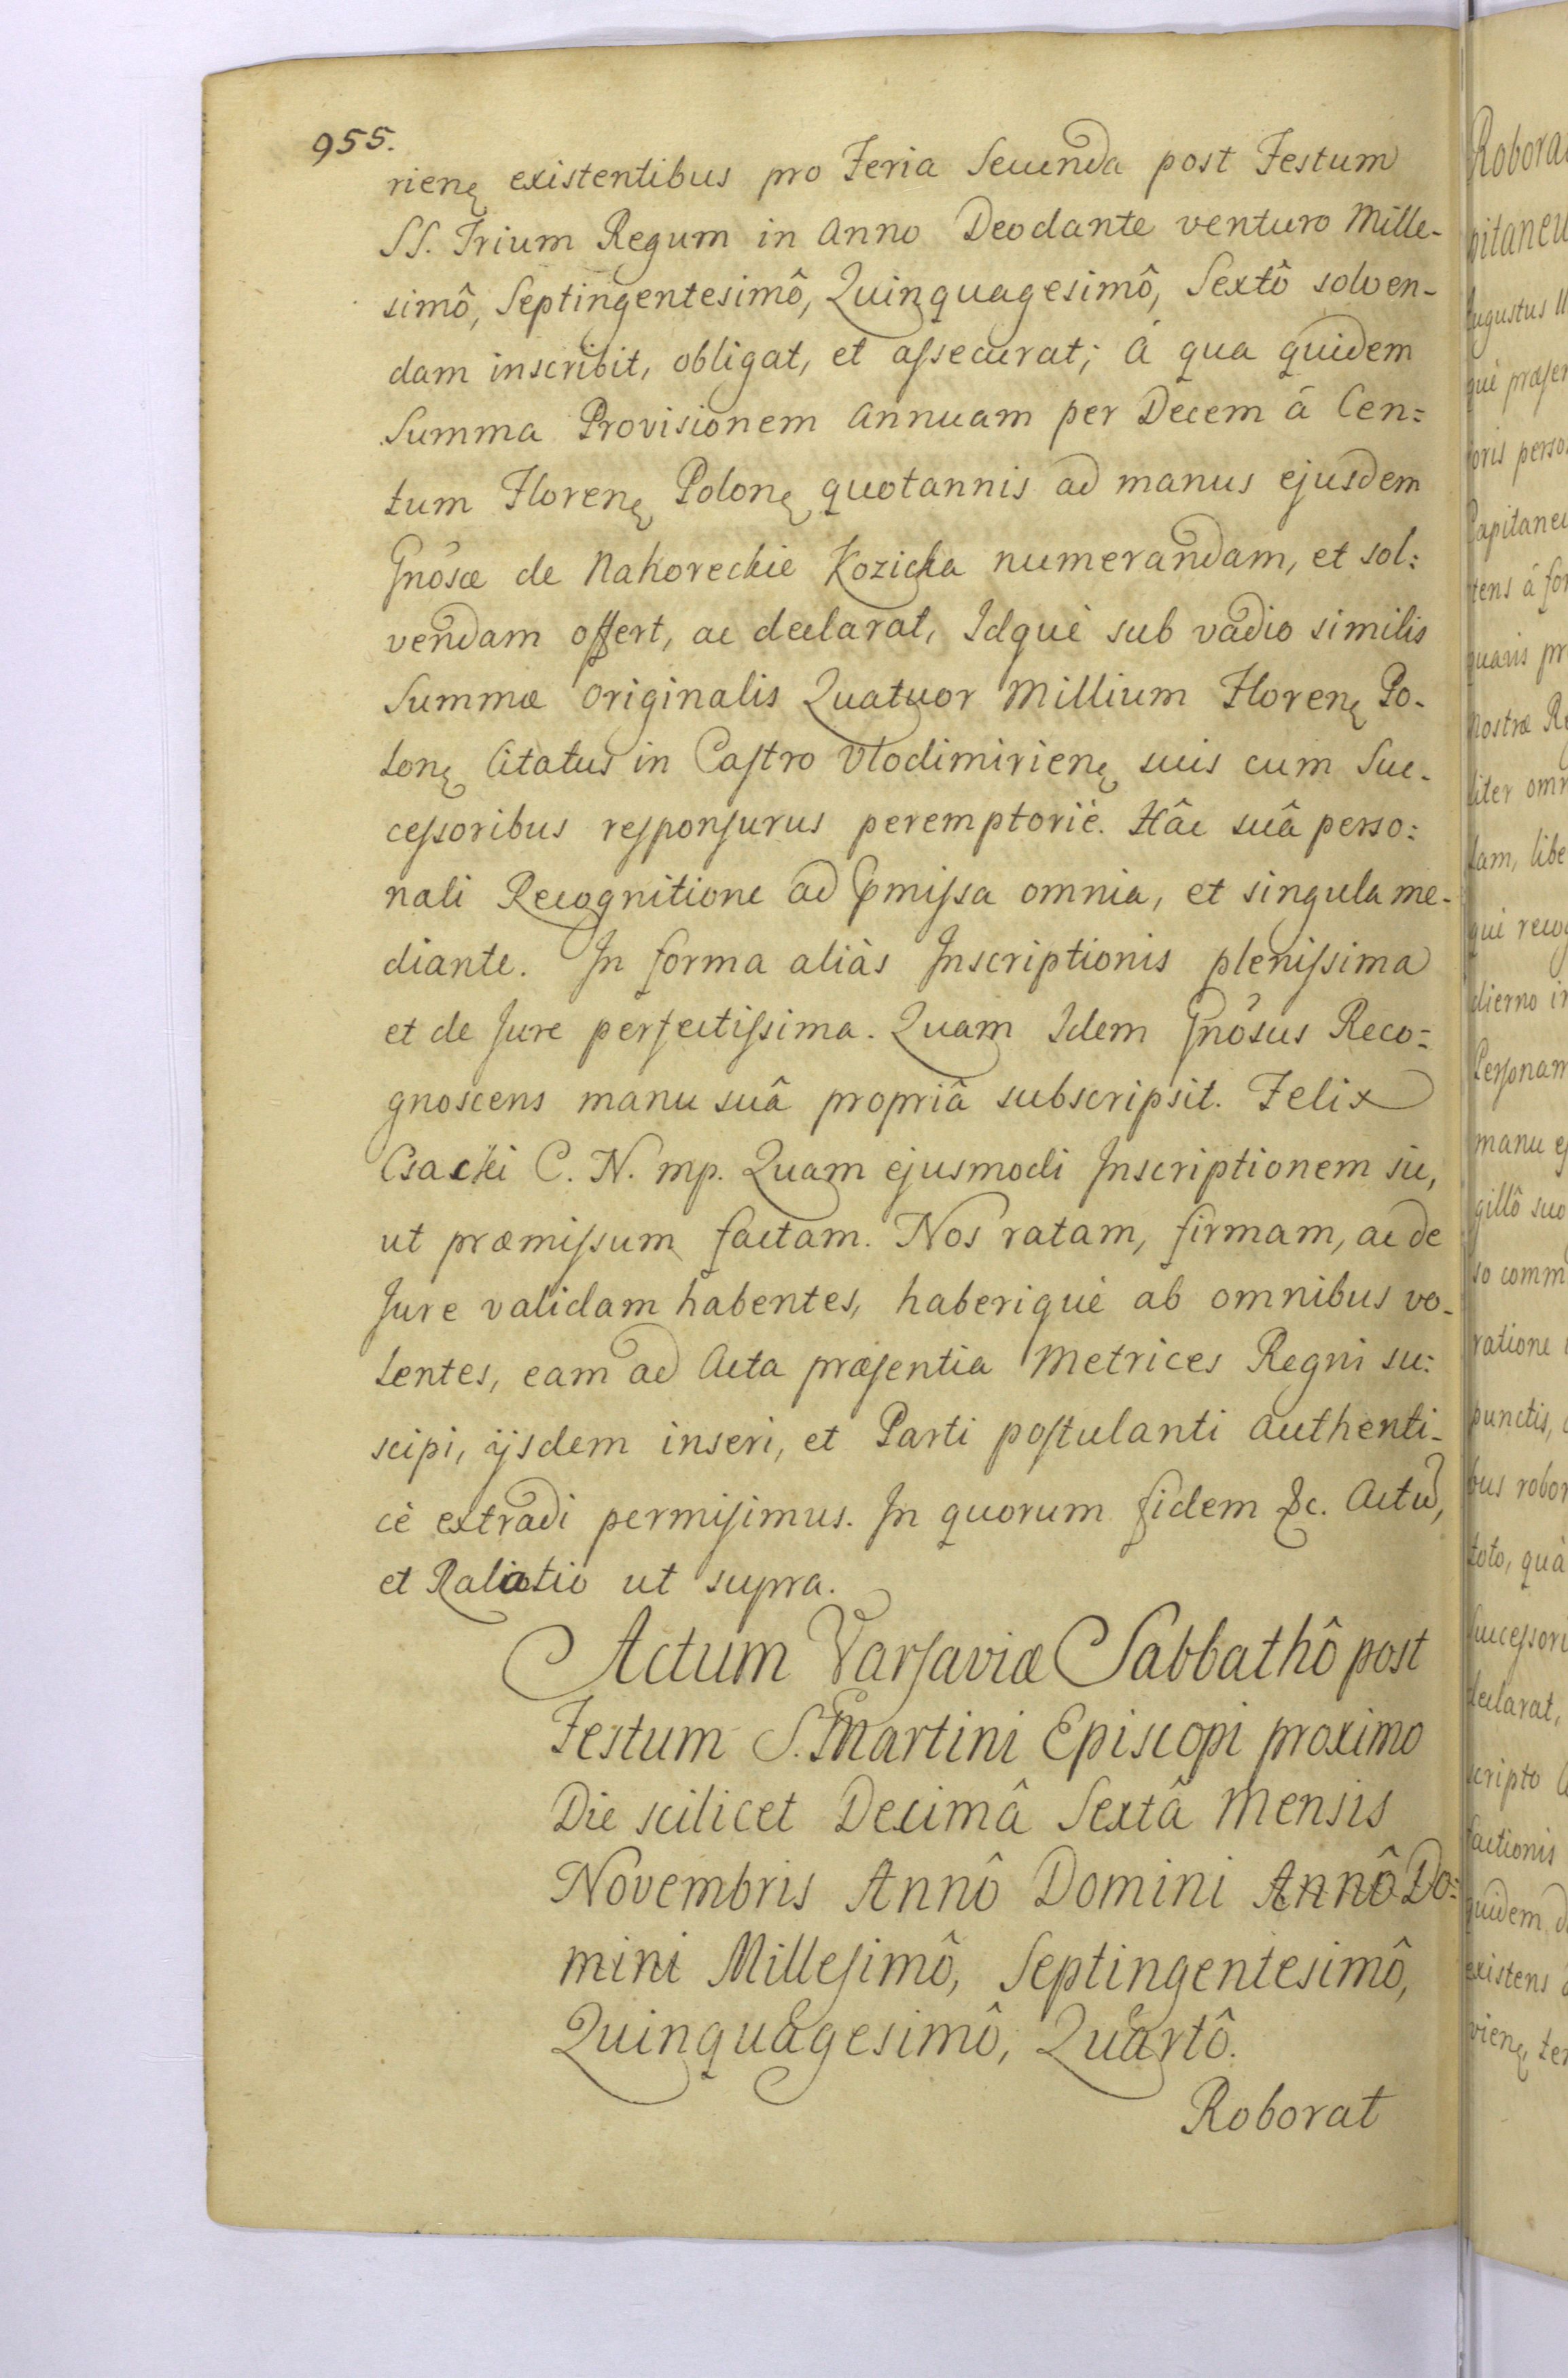 955.
rienȩ existentibus pro Feria Secunda post Festum
SS. Trium Regum in Anno Deodante venturo Mille-
simô, Septingentesimô, Quinquagesimô, Sextô solven-
dam inscribit, obligat, et assecurat; á qua quidem
Summa Provisionem Annuam per Decem á Cen=
tum Florenȩ Polonȩ quotannis ad manus ejusdem
Gnôsæ de Nahoreckie Kozicka numerandam, et sol=
vendam offert, ac declarat, Idquè sub vadio similis
Summæ Originalis Quatuor Millium Florenȩ Po-
lonȩ Citatus in Castro Vlodimirienȩ suis cum Suc-
cessoribus responsurus peremptoriè. Hâc suâ perso=
nali Recognitione ad Pmissa omnia, et singula me-
diante. In forma aliàs Inscriptionis plenissima
et de Jure perfectissima. Quam Idem Gnôsus Reco=
gnoscens manu suâ propriâ subscripsit. Felix
Csacki C. N. mp. Quam ejusmodi Inscriptionem sic,
ut præmissum factam. Nos ratam, firmam, ac de
Jure validam habentes, haberiquè ab omnibus vo-
lentes, eam ad Acta præsentia Metrices Regni su=
scipi, ijsdem inseri, et Parti postulanti Authenti-
cè extradi permisimus. In quorum fidem &c. Actũ,
et Raliatio ut supra.
Actum Varsaviæ Sabbathô post
Festum S. Martini Episcopi proximo
Die scilicet Decimâ Sextâ Mensis
Novembris Annô Domini Annô Do=
mini Millesimô, Septingentesimô,
Quinquagesimô, Quartô.
Roborat